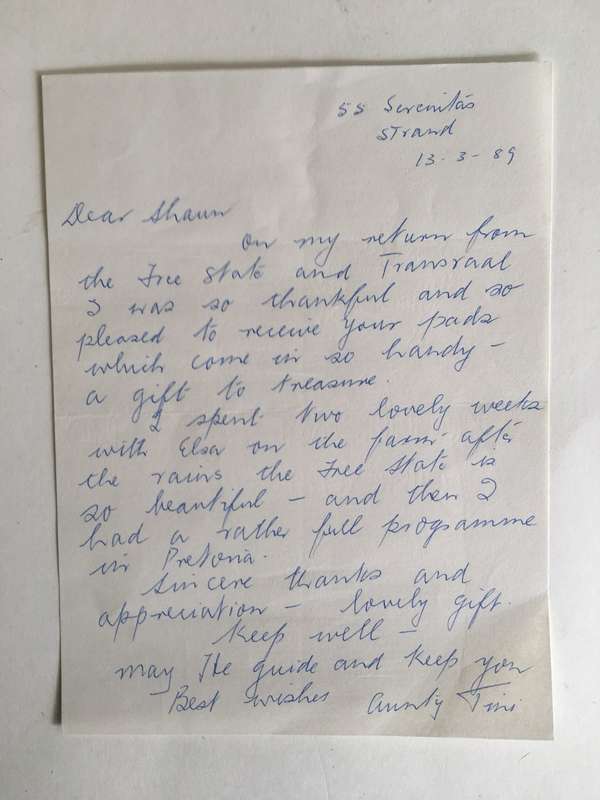 55 Serenitás
Strand
13-3-89
Dear Shaun
on my return from
the Free State and Transvaal
I was so thankful and so
pleased to receive your pads
which come in so handy -
a gift to treasure.
I spent two lovely weeks
with Elsa on the farm after
the rains the Free State is
so beautiful - and then I
had a rather full programme
in Pretoria.
Sincere thanks and
appreciation - lovely gift.
Keep well -
may He guide and keep you
Best wishes Aunty Tini